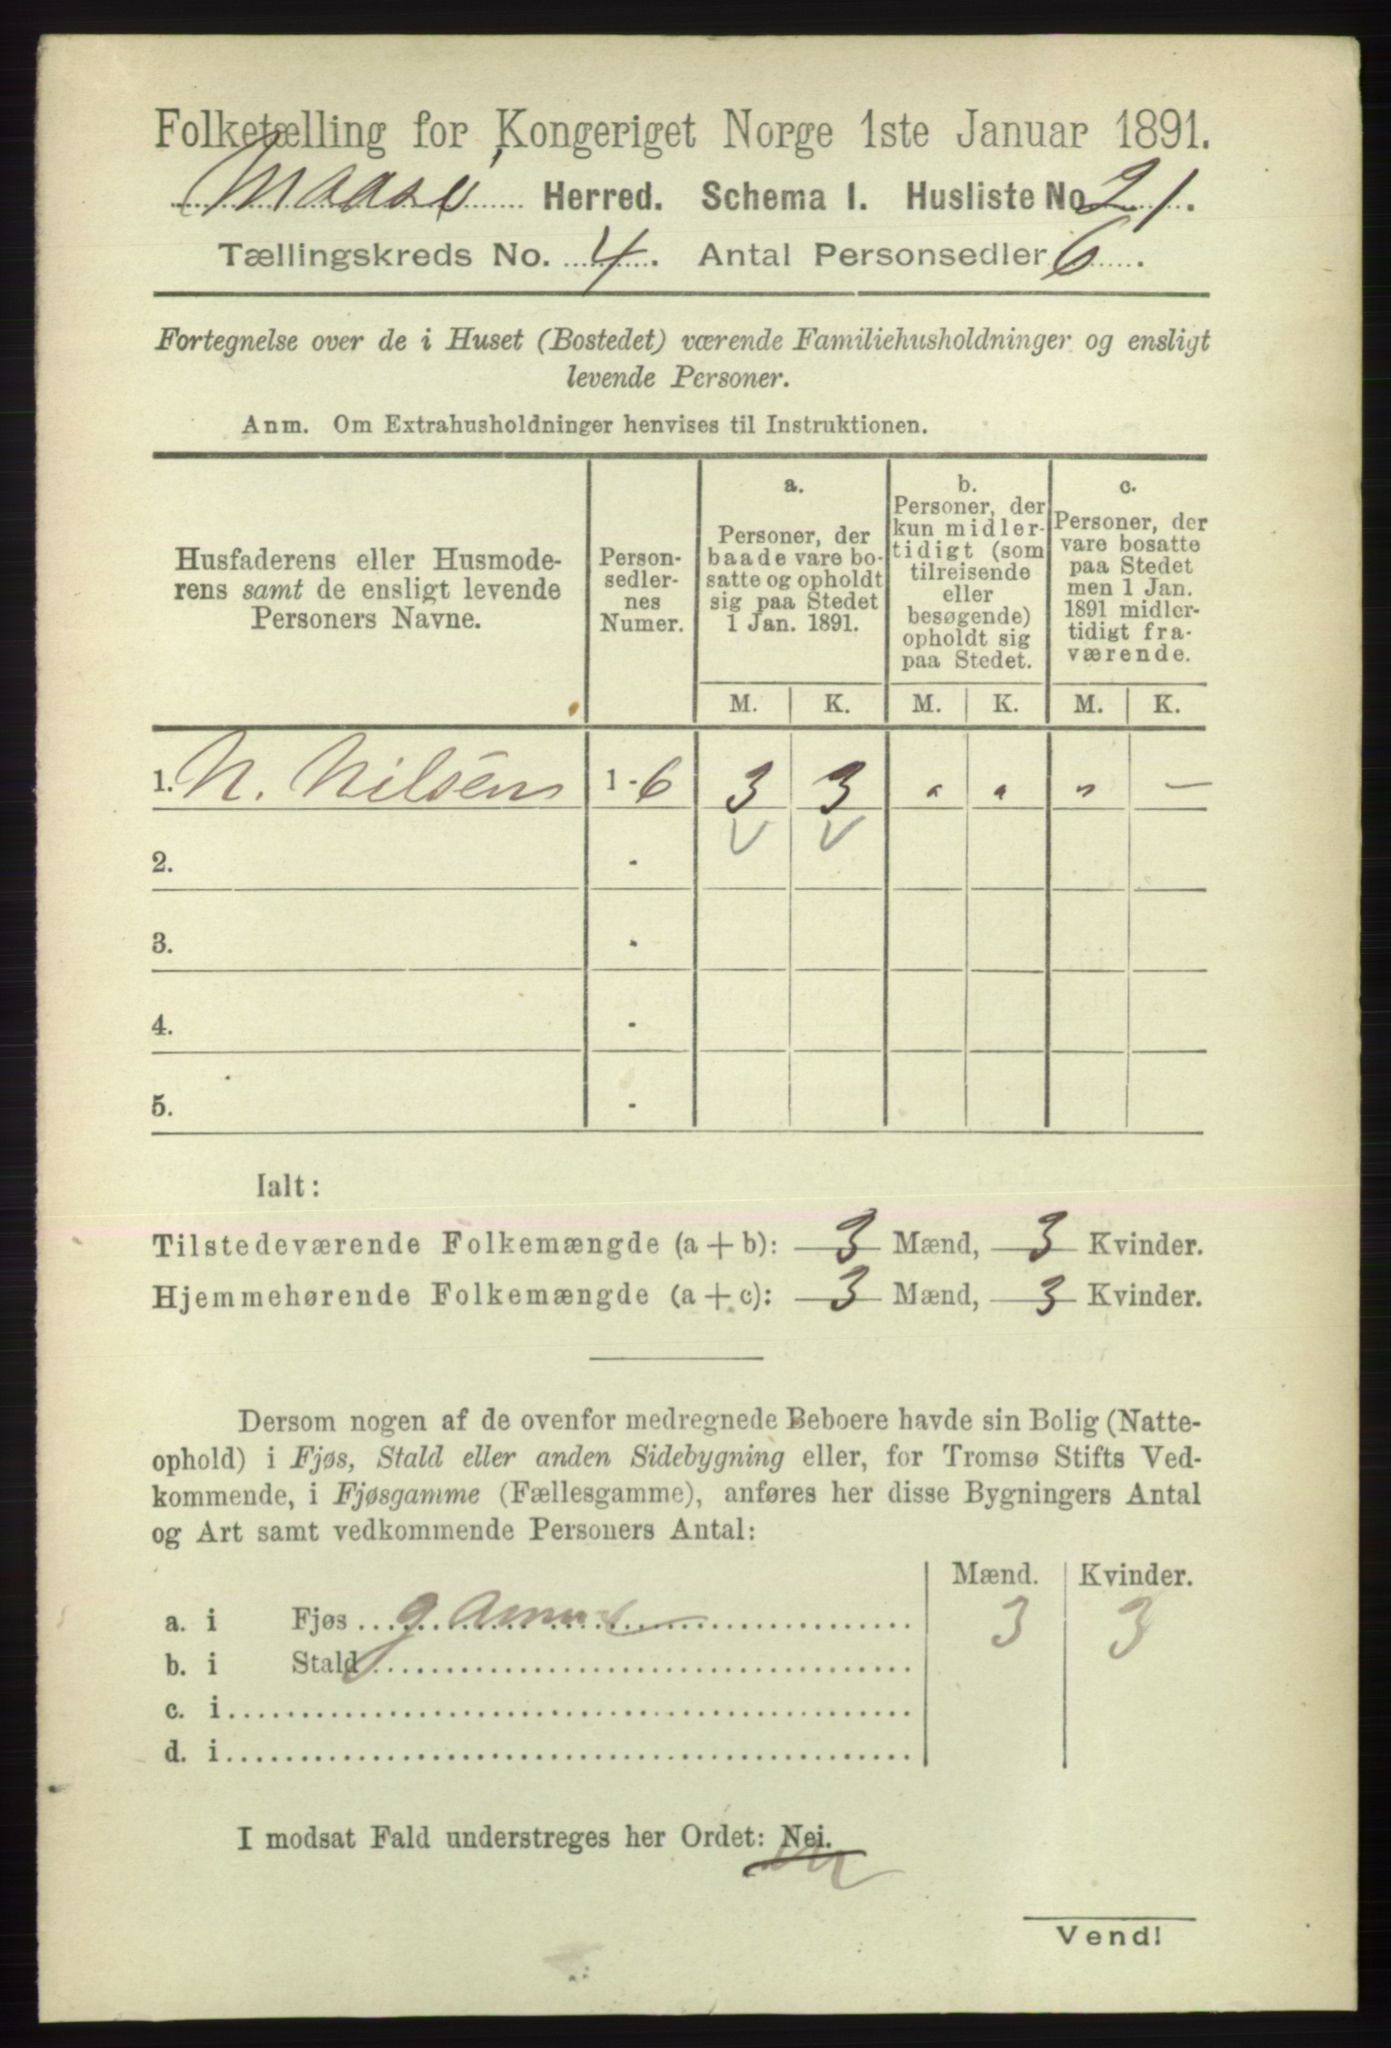 Folketælling for Kongeriget Norge 1ste Januar 1891.
Maasø Herred. Schema I. Husliste No 21.
Tællingskreds No. 4. Antal Personsedler 6.
Fortegnelse over de i Huset (Bostedet) værende Familiehusholdninger og ensligt
levende Personer.
Anm. Om Extrahusholdninger henvises til Instruktionen.
Husfaderens eller Husmode-
rens samt de ensligt levende
Personers Navne.
Person-
sedler-
nes
Numer.
a.
Personer, der
baade vare bo-
satte og opholdt
sig paa Stedet
1 Jan. 1891.
b.
Personer, der
kun midler-
tidigt (som
tilreisende
eller
besøgende)
opholdt sig
paa Stedet.
c.
Personer, der
vare bosatte
paa Stedet
men 1 Jan.
1891 midler-
tidigt fra-
værende.
M. K. M. K. M. K.
1. N. Nilsen 1-6 3 3 " " " —
2. -
3. -
4. -
5. -
Ialt:
Tilstedeværende Folkemængde (a + b): 3 Mænd, 3 Kvinder.
Hjemmehørende Folkemængde (a + c): 3 Mænd, 3 Kvinder.
Dersom nogen af de ovenfor medregnede Beboere havde sin Bolig (Natte-
ophold) i Fjøs, Stald eller anden Sidebygning eller, for Tromsø Stifts Ved-
kommende, i Fjøsgamme (Fællesgamme), anføres her disse Bygningers Antal
og Art samt vedkommende Personers Antal:
Mænd. Kvinder.
a. i Fjøs gamme 3 3
b. i Stald
c. i
d. i
I modsat Fald understreges her Ordet: Nei.
Vend!